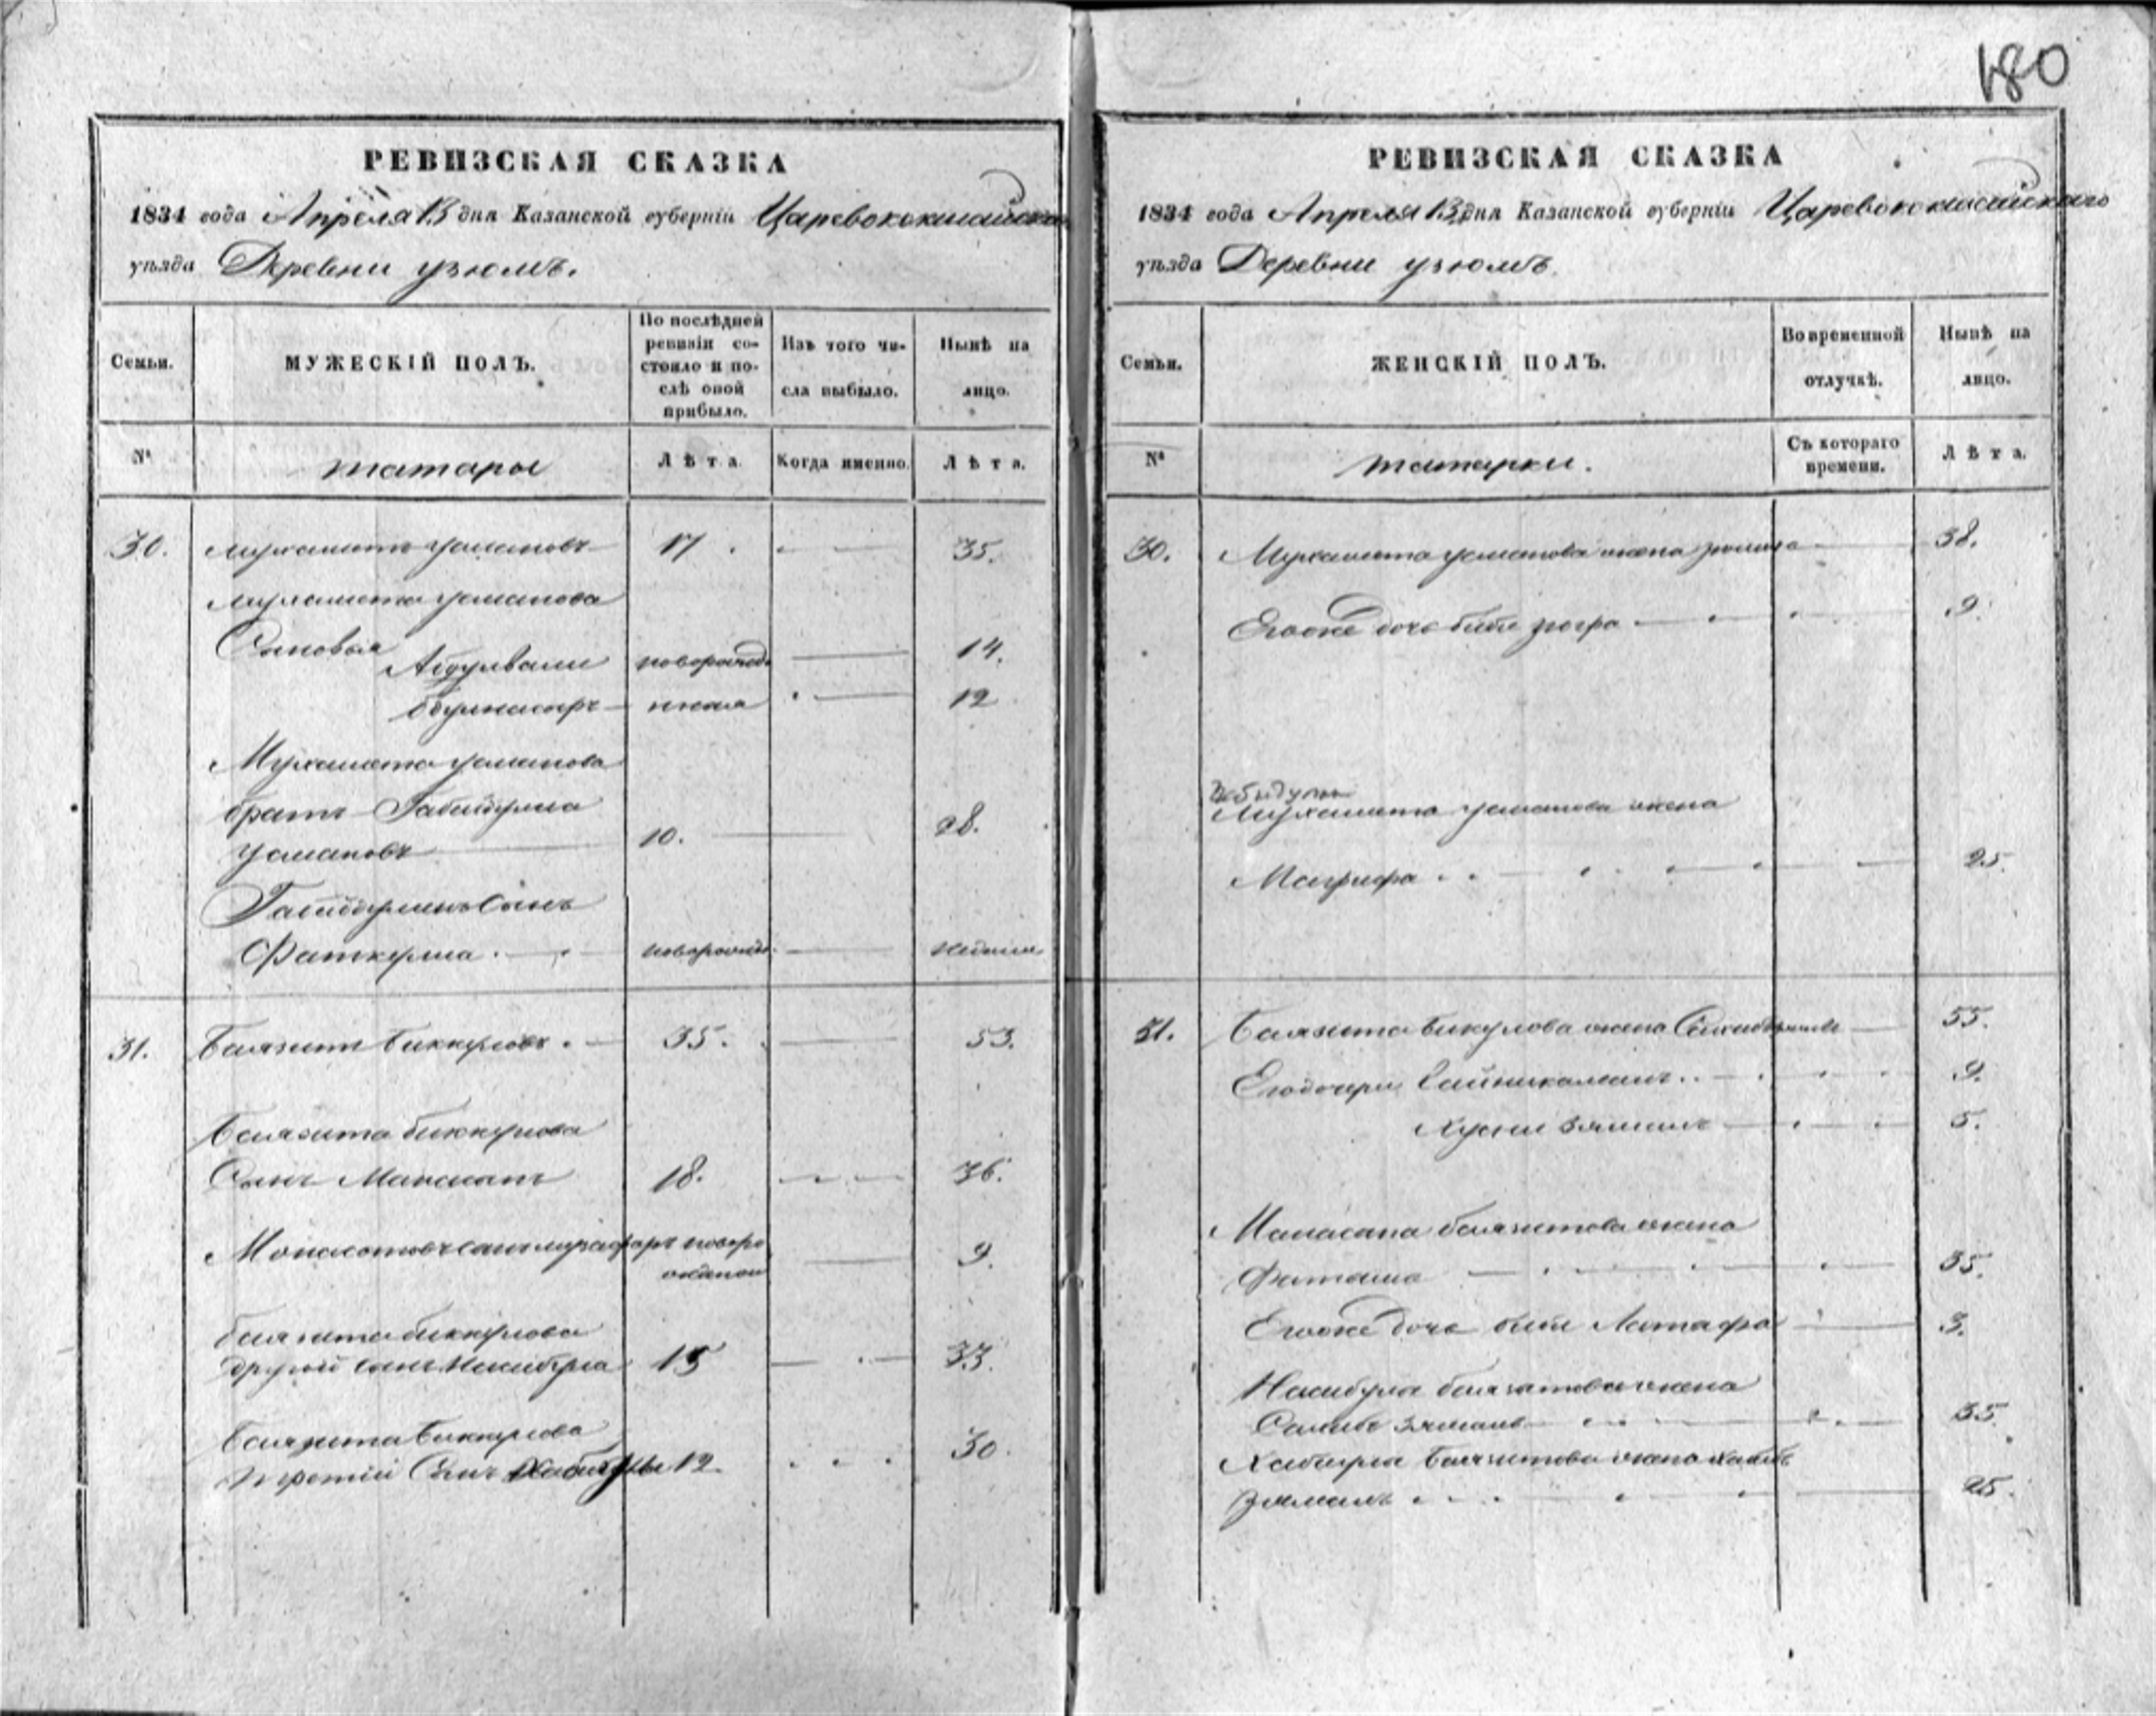 180
РЕВИЗСКАЯ СКАЗКА
1834 года Апреля 13 дня Казанской губерніи Царевококшайска
уѣзда Деревни узюмъ.
Семьи.
МУЖЕСКІЙ ПОЛЪ.
По послѣдней ревизіи состояло и послѣ оной прибыло.
Изъ того числа выбыло.
Нынѣ на лицо.
№
татары
Лѣта.
Когда именно.
Лѣта.
30. Мухаметъ Усмановъ 17. 35.
Мухамета Усманова
Сыновья
Абдулвали новорожде 14.
нные 12
Мухамета Усманова
братъ Габидулла
Усмановъ 10. 28.
Габидуллинъ Сынъ
Фаткулла новорожде недели
31. Баязитъ Биккуловъ. 35. 53.
Баязита биккулова
Сынъ Манасапъ 18. 36.
новоро
жданои 9.
баязита биккулова
другой Сынъ Насибулла 15 33.
Баязита Биккулова
третій Сынъ 12 30.
РЕВИЗСКАЯ СКАЗКА
1834 года Апреля 13 дня Казанской губерніи Царевококшайскаго
уѣзда Деревни узюмъ.
Семьи.
ЖЕНСКІЙ ПОЛЪ.
Во временной отлучкѣ.
Нынѣ на лицо.
№
татарки.
Съ котораго времени.
Лѣта.
30. Мухамета Усманова жена 38.
Егоже дочь биби 9.
Мухамета Усманова жена
Магруфа 25.
31. Баязита Бикулова жена 55.
Его дочери 9.
Хусни зямалъ 5.
Манасапа баязитова жена
Фатима 35.
Егоже дочь биби Латафа 3.
Насибулла баязитова жена
зямалъ 35.
Хабулла Баязитова жена
зямалъ 25.